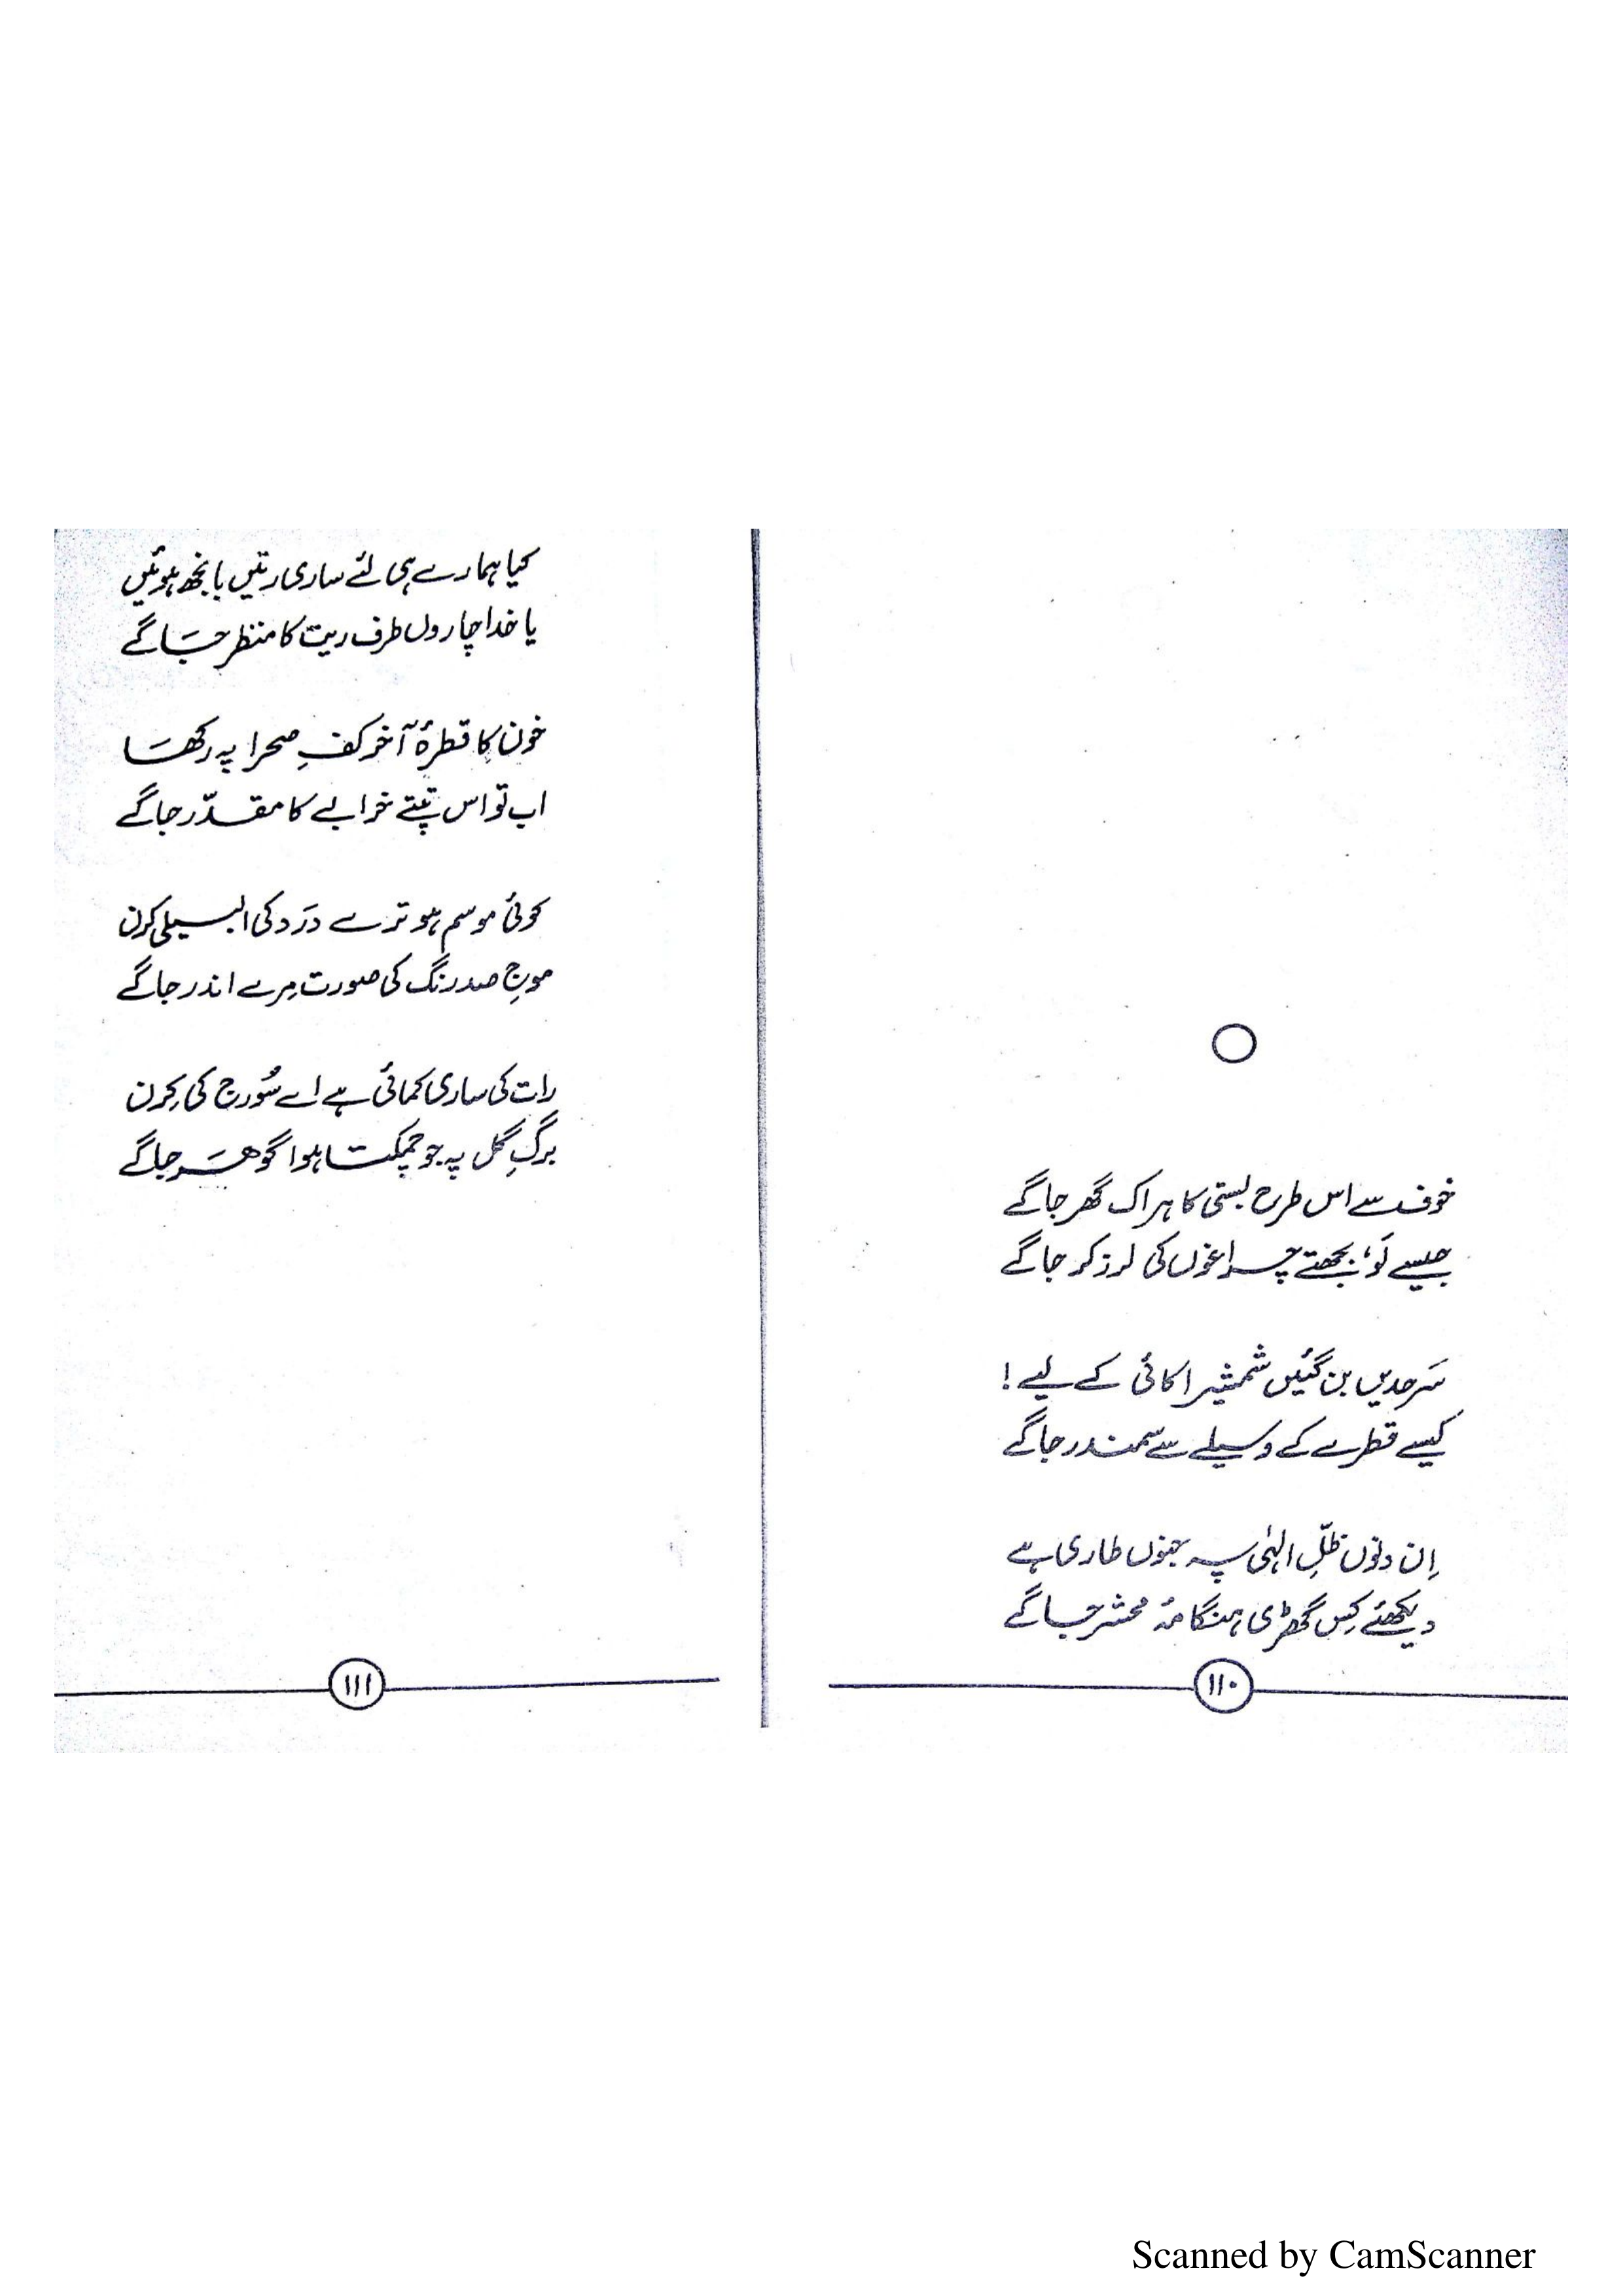 خوف سے اس طرح بستی کا ہر اک گھر جاگے
جیسے لَو، بجھتے چراغوں کی لرز کر جاگے
سَرحدیں بن گئیں شمشیر اکائی کے لیے!
کیسے قطرے کے وسیلے سے سمندر جاگے
اِن دنوں ظلِّ الہٰی پہ جنوں طاری ہے
دیکھئے کِس گھڑی ہنگامۂ محشر جاگے
۱۱۰
کیا ہمارے ہی لئے ساری رتیں بانجھ ہوئیں
یا خدا چاروں طرف ریت کا منظر جَاگے
خون کا قطرۂ آخر کفِ صحرا پہ رکھَا
اب تو اس تپتے خرابے کا مقدّر جاگے
کوئی موسم ہو ترے دَرد کی البیلی کرن
موجِ صد رنگ کی صورت مِرے اندر جاگے
رات کی ساری کمائی ہے اے سُورج کی کِرن
برگِ گُل پہ جو چمکتا ہوا گوھَر جاگے
۱۱۱
Scanned by CamScanner